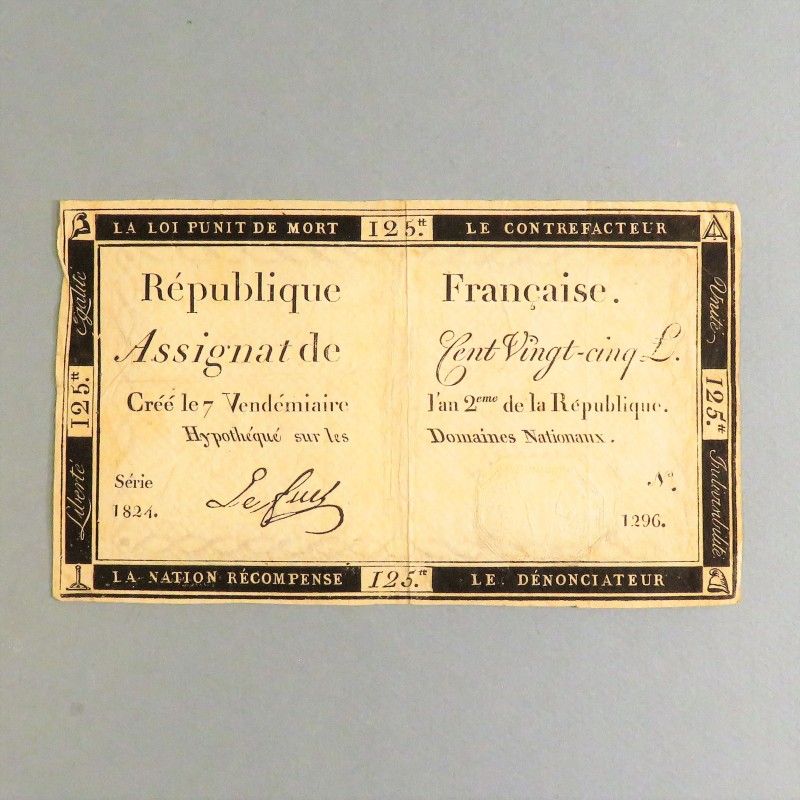 LA LOI PUNIT DE MORT 125.tt LE CONTREFACTEUR
Egalité
125.tt
Liberté
République Française.
Assignat de Cent Vingt-cinq L.
Créé le 7 Vendémiaire l'an 2eme de la République.
Hypothéqué sur les Domaines Nationaux.
Série No.
1824. 1296.
Unité
125.tt
Indivisibilité
LA NATION RÉCOMPENSE 125.tt LE DÉNONCIATEUR